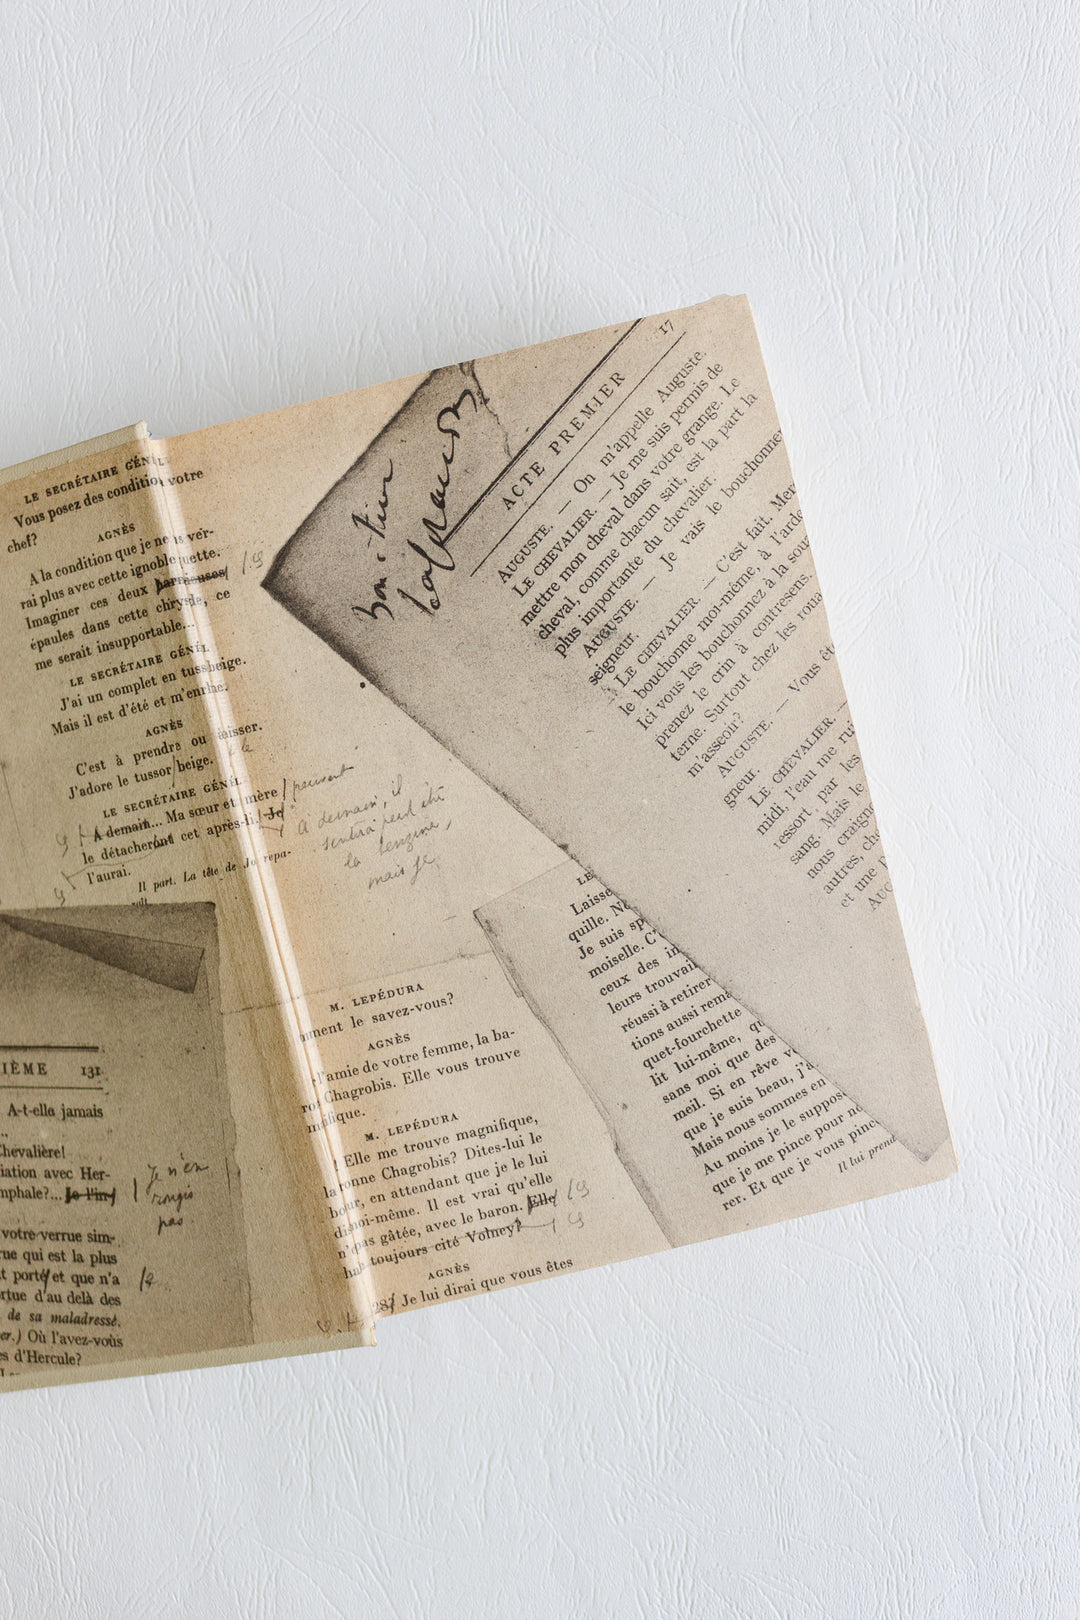 LE SECRÉTAIRE GÉNÉL
Vous posez des condition votre
chef?
AGNÈS
A la condition que je ne us ver-
rai plus avec cette ignoble uette.
Imaginer ces deux
épaules dans cette chryside, ce
me serait insupportable...
LE SECRÉTAIRE GÉNÉL
J'ai un complet en tuss beige.
Mais il est d'été et m'enrhe.
AGNÈS
C'est à prendre ou laisser.
J'adore le tussor beige.
LE SECRÉTAIRE GÉNÉL
A demain... Ma sœur et mère peuvent
le détacheront cet après-i. Je
l'aurai.
Il part. La tête de Jo repa-
A demain, il
sentira peut être
la benzine,
mais je
IÈME 131
A-t-elle jamais
Chevalière!
iation avec Her-
mphale?... Je l'in
Je n'en
rougis
pas
votre verrue sim-
rue qui est la plus
t porté et que n'a
rtue d'au delà des
de sa maladresse.
er.) Où l'avez-vous
es d'Hercule?
M. LEPÉDURA
mment le savez-vous?
AGNÈS
l'amie de votre femme, la ba-
ro Chagrobis. Elle vous trouve
mifique.
M. LEPÉDURA
Elle me trouve magnifique,
la ronne Chagrobis? Dites-lui le
bour, en attendant que je le lui
di moi-même. Il est vrai qu'elle
n'pas gâtée, avec le baron. Elle
ha toujours cité Volney?
AGNÈS
28 Je lui dirai que vous êtes
bon à tirer
17
ACTE PREMIER
AUGUSTE. — On m'appelle Auguste.
LE CHEVALIER. — Je me suis permis de
mettre mon cheval dans votre grange. Le
cheval, comme chacun sait, est la part la
plus importante du chevalier.
AUGUSTE. — Je vais le bouchonner
seigneur.
LE CHEVALIER. — C'est fait. Mer
le bouchonne moi-même, à l'arde
Ici vous les bouchonnez à la sou
prenez le crin à contresens.
terne. Surtout chez les roua
m'asseoir?
AUGUSTE. — Vous ête
gneur.
LE CHEVALIER. —
midi, l'eau me rui
ressort par les
sang. Mais le
nous craigne
autres, che
et une p
AUG
LE
Laisse
quille. No
Je suis sp
moiselle. C'
ceux des in
leurs trouvail
réussi à retirer
tions aussi rema
quet-fourchette
lit lui-même, qu
sans moi que des
meil. Si en rêve v
que je suis beau, j'a
Mais nous sommes en
Au moins je le suppos
que je me pince pour no
rer. Et que je vous pinc
Il lui prend